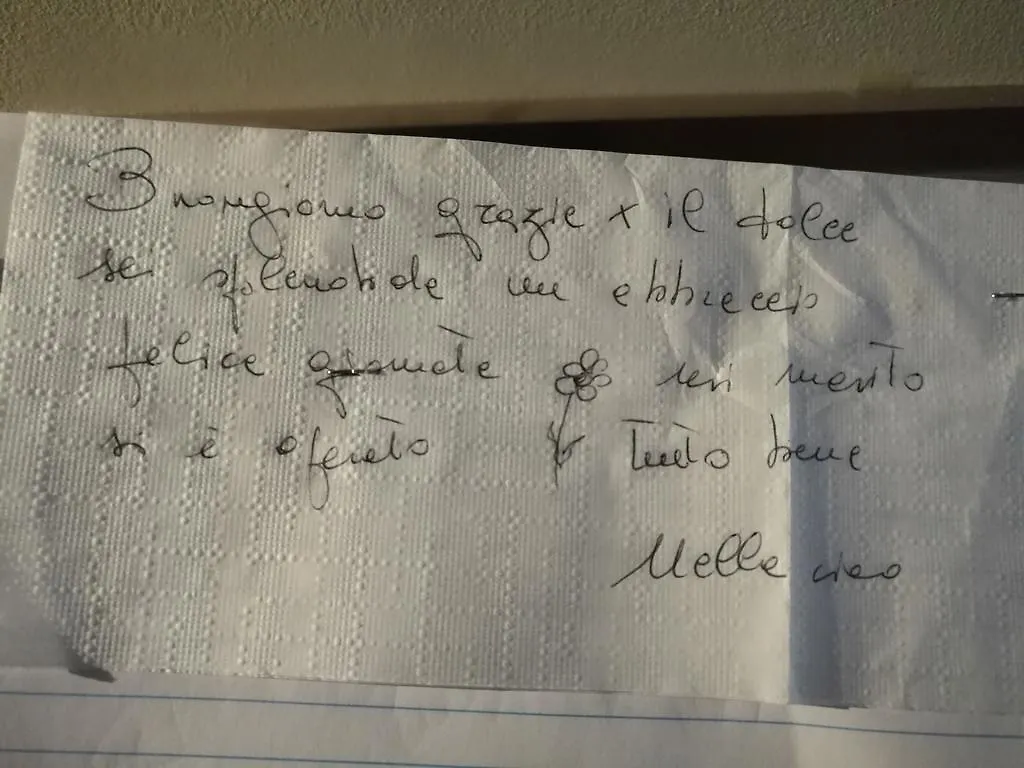 Buongiorno grazie x il dolce
sei splendida un abbraccio
felice giornata ieri
si è Tutto bene
ciao